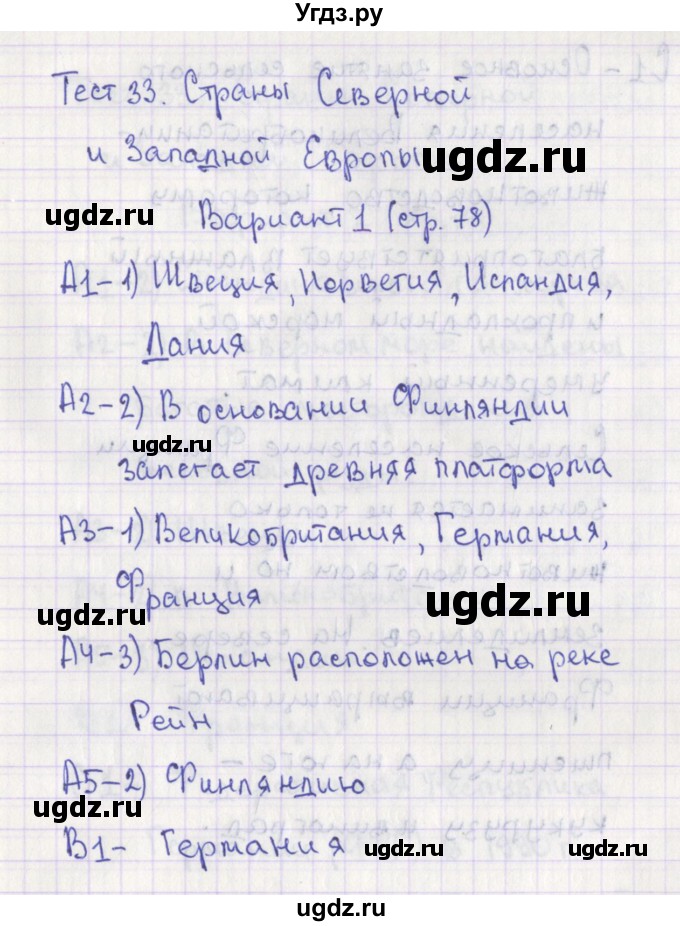 Угдз.ру
Тест 33. Страны Северной
и Западной Европы
ugdz.ru
ugdz.ru
Вариант 1 (стр. 78)
А1-1) Швеция, Норвегия, Исландия,
Дания
А2-2) В основании Финляндии
ugdz.ru
залегает древняя платформа
А3-1) Великобритания, Германия,
Франция
ugdz.ru
ugdz.ru
А4-3) Берлин расположен на реке
Рейн
А5-2) Финляндию
ugdz.ru
В1- Германия
ugdz.ru
ugdz.ru
ugdz.ru